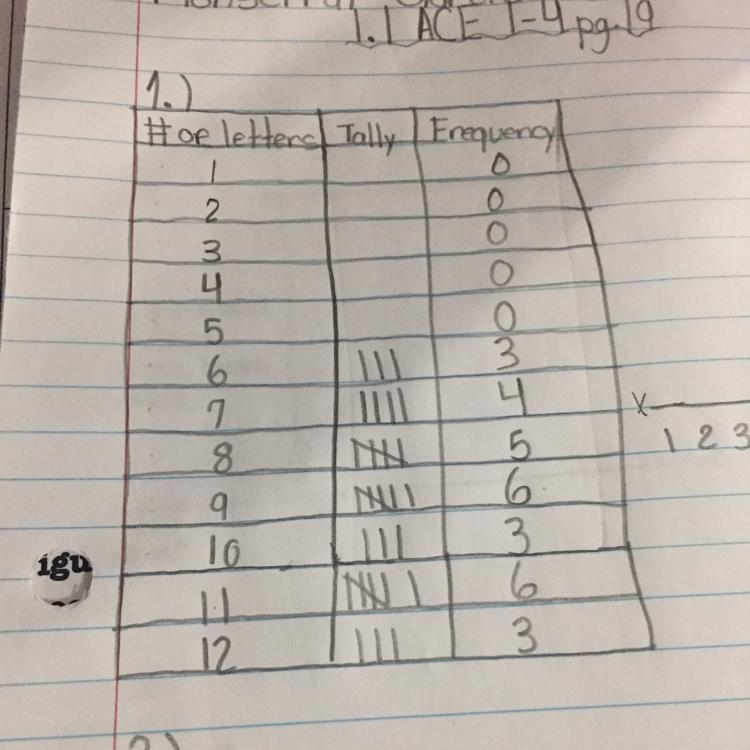 1.1 ACE 1-4 pg.19
1.)
# of letters Tally Frequency
1 0
2 0
3 0
4 0
5 0
6 III 3
7 IIII 4
8 5
9 6
10 III 3
11 6
12 III 3
X
1 2 3
igu
2)